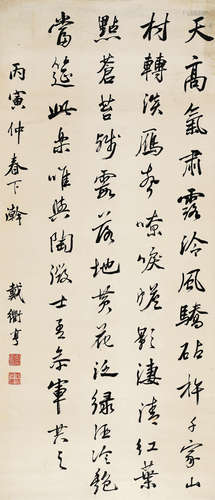 天高氣肅露泠風驕砧杵千家山
村轉淡雁聲嘹唳蟾影淒清紅葉
點蒼苔殘露落地黃花泛綠酒冷艷
當筵此樂唯與陶徵士孟參軍共之
丙寅仲春下澣
戴衢亨